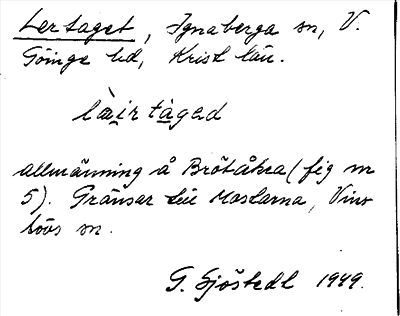 Lertaget, Ignaberga sn, V.
Göinge hd, Krist län.
làirtàged
allmänning å Brötåkra (fig nr
5). Gränsar till Maslarna, Vins
lövs sn.
G. Sjöstedt 1949.